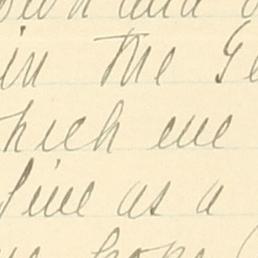 and
in the Ge
which we
live as a
hope